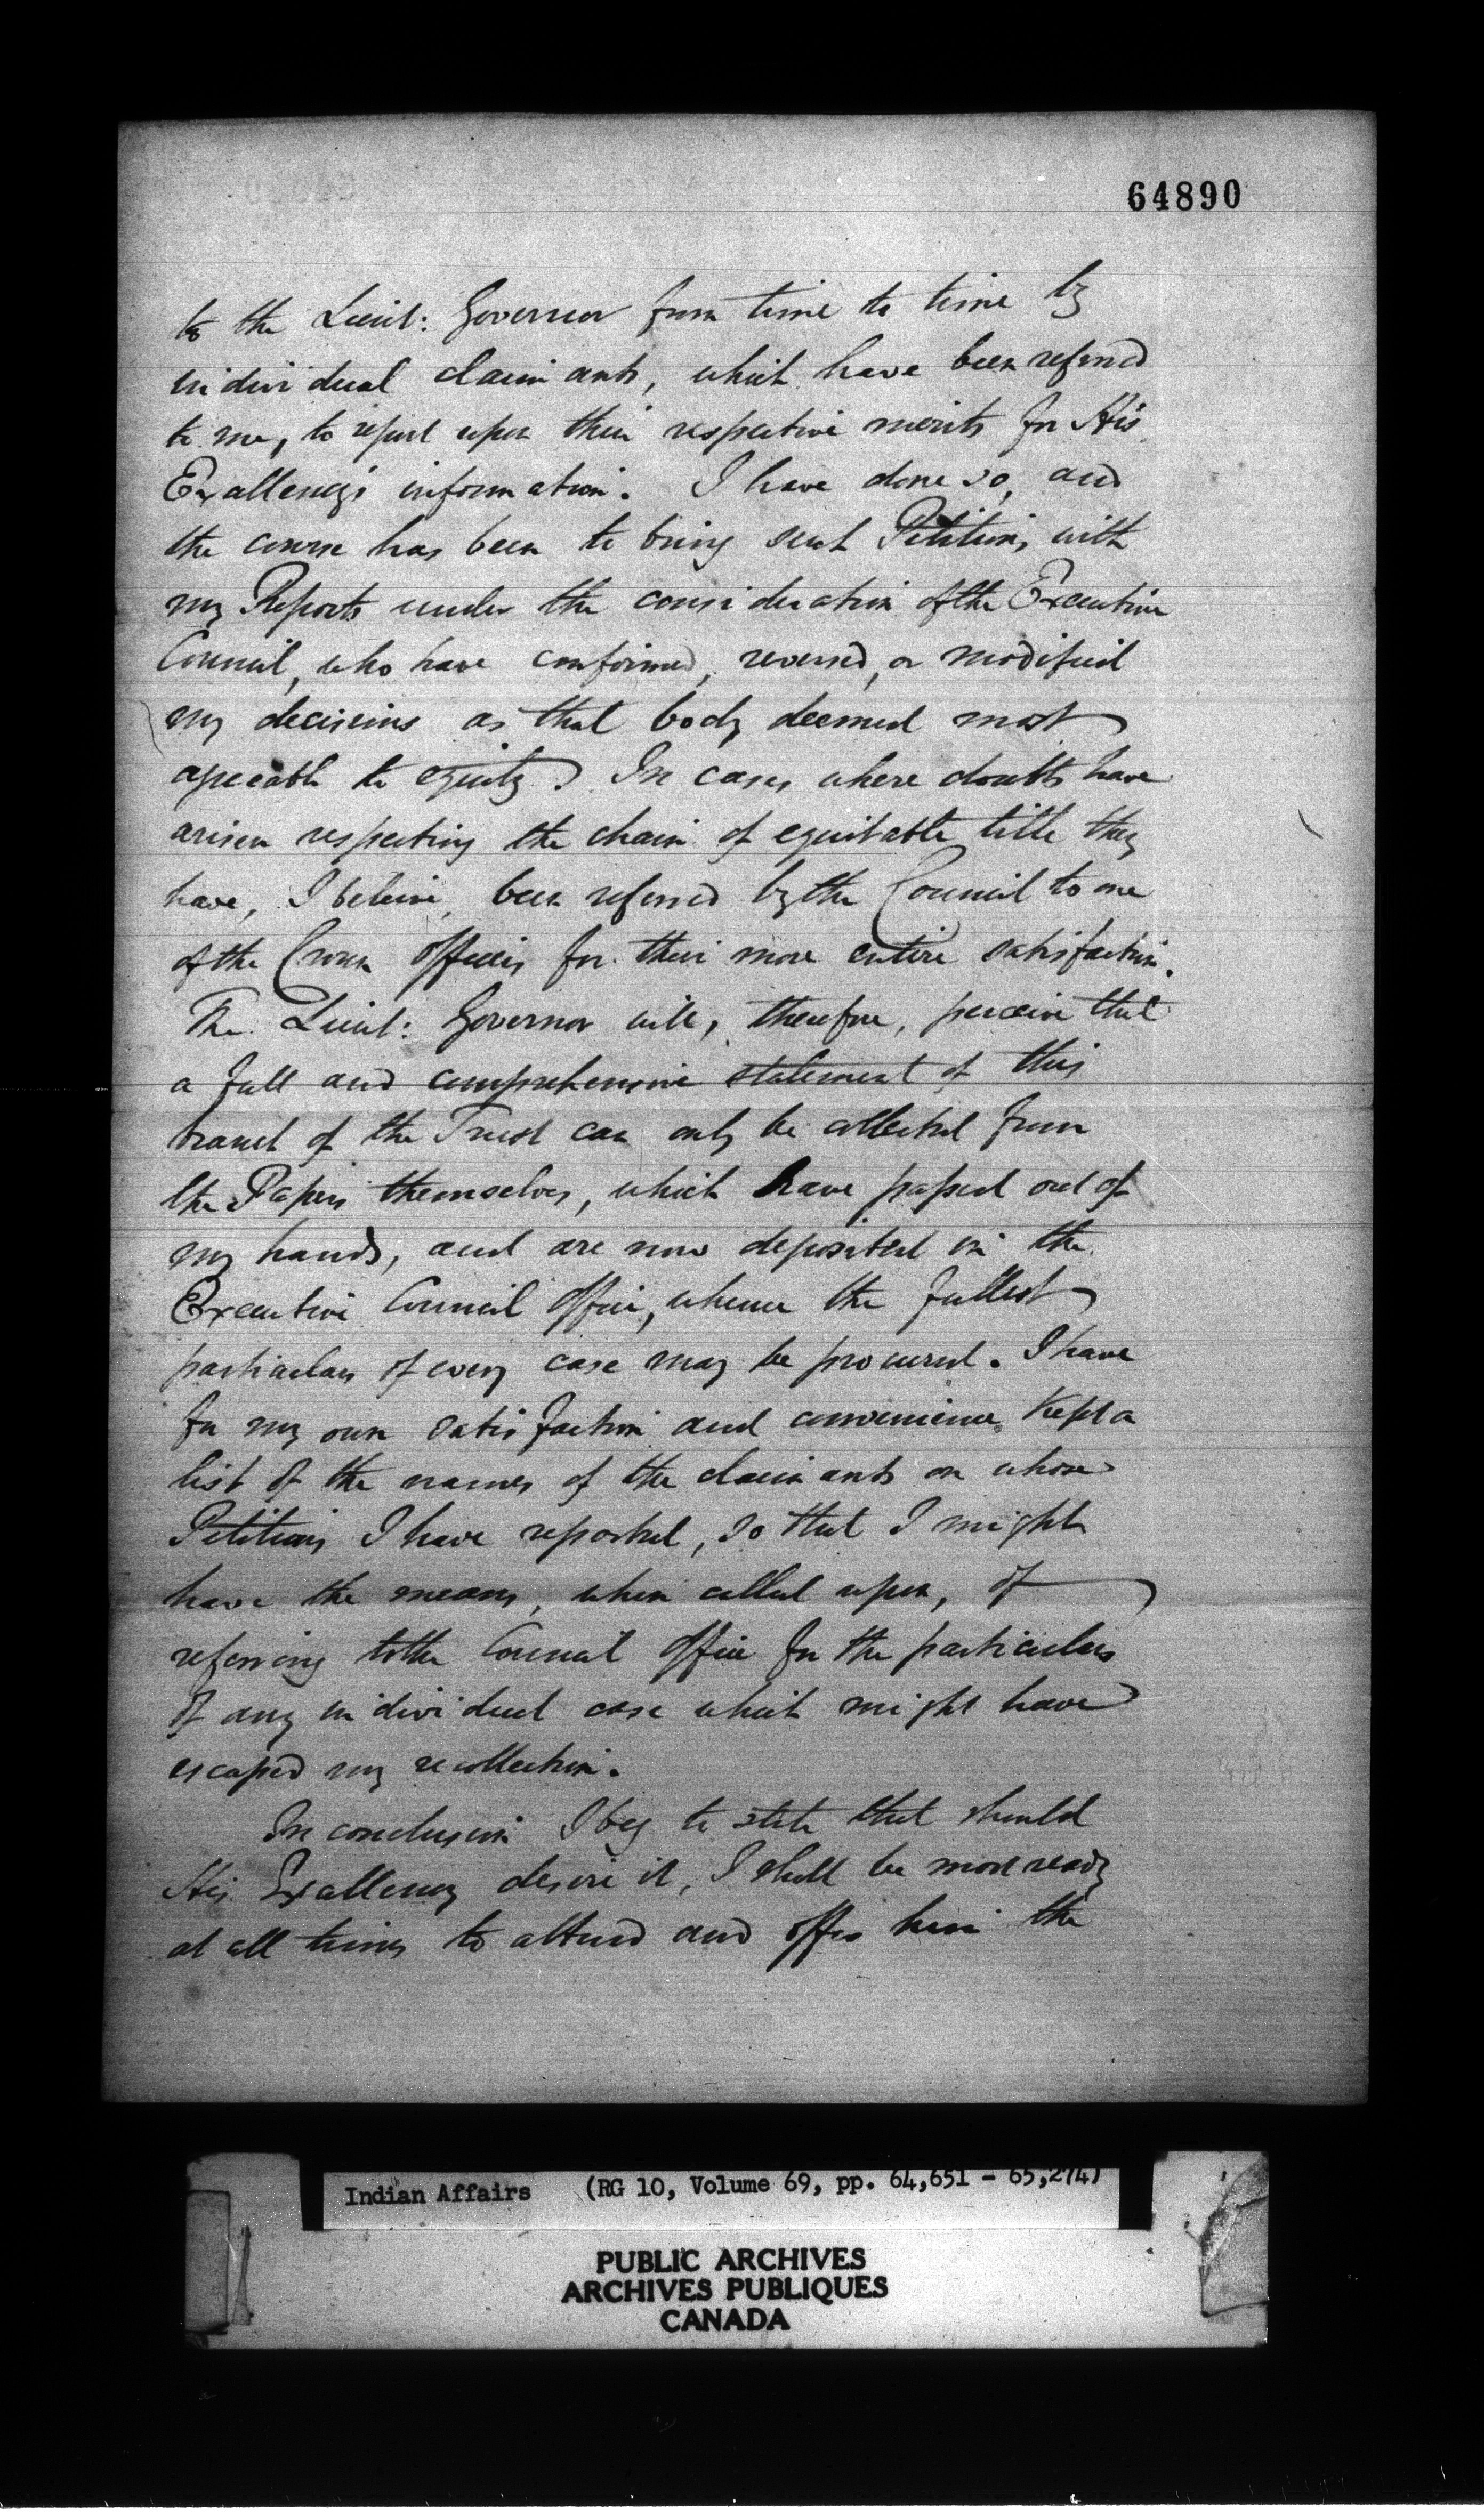 64890
to the Lieut: Governor from time to time by
individual claimants, which have been referred
to me, to report upon their respective merits for His
Excellency's information. I have done so, and
the course has been to bring such Petitions, with
my Reports under the consideration of the Executive
Council, who have confirmed, reversed, or modified
my decisions as that body deemed most
agreeable to equity. In cases where doubts have
arisen respecting the chain of equitable title they
have, I believe, been referred by the Council to one
of the Crown Officers for their more entire satisfaction.
The Lieut: Governor will, therefore, perceive that
a full and comprehensive statement of this
branch of the Trust can only be collected from
the Papers themselves, which have passed out of
my hands, and are now deposited in the
Executive Council Office, whence the fullest
particulars of every case may be procured. I have
for my own satisfaction and convenience kept a
list of the names of the claimants on whose
Petitions I have reported, so that I might
have the means, when called upon, of
referring to the Council Office for the particulars
of any individual case which might have
escaped my recollection.
In conclusion I beg to state that should
His Excellency desire it, I shall be most ready
at all times to attend and offer him the
Indian Affairs (RG 10, Volume 69, pp. 64,651 - 65,274)
PUBLIC ARCHIVES
ARCHIVES PUBLIQUES
CANADA